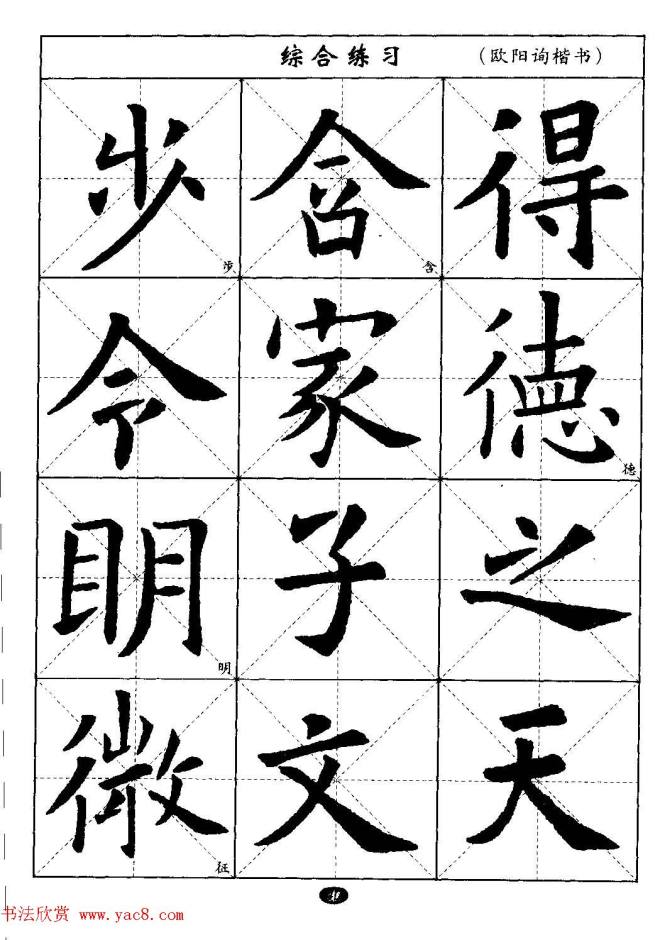 综合练习 （欧阳询楷书）
得徳之天
德
含家子文
含
步令眀徵
步
明
征
书法欣赏 www.yac8.com